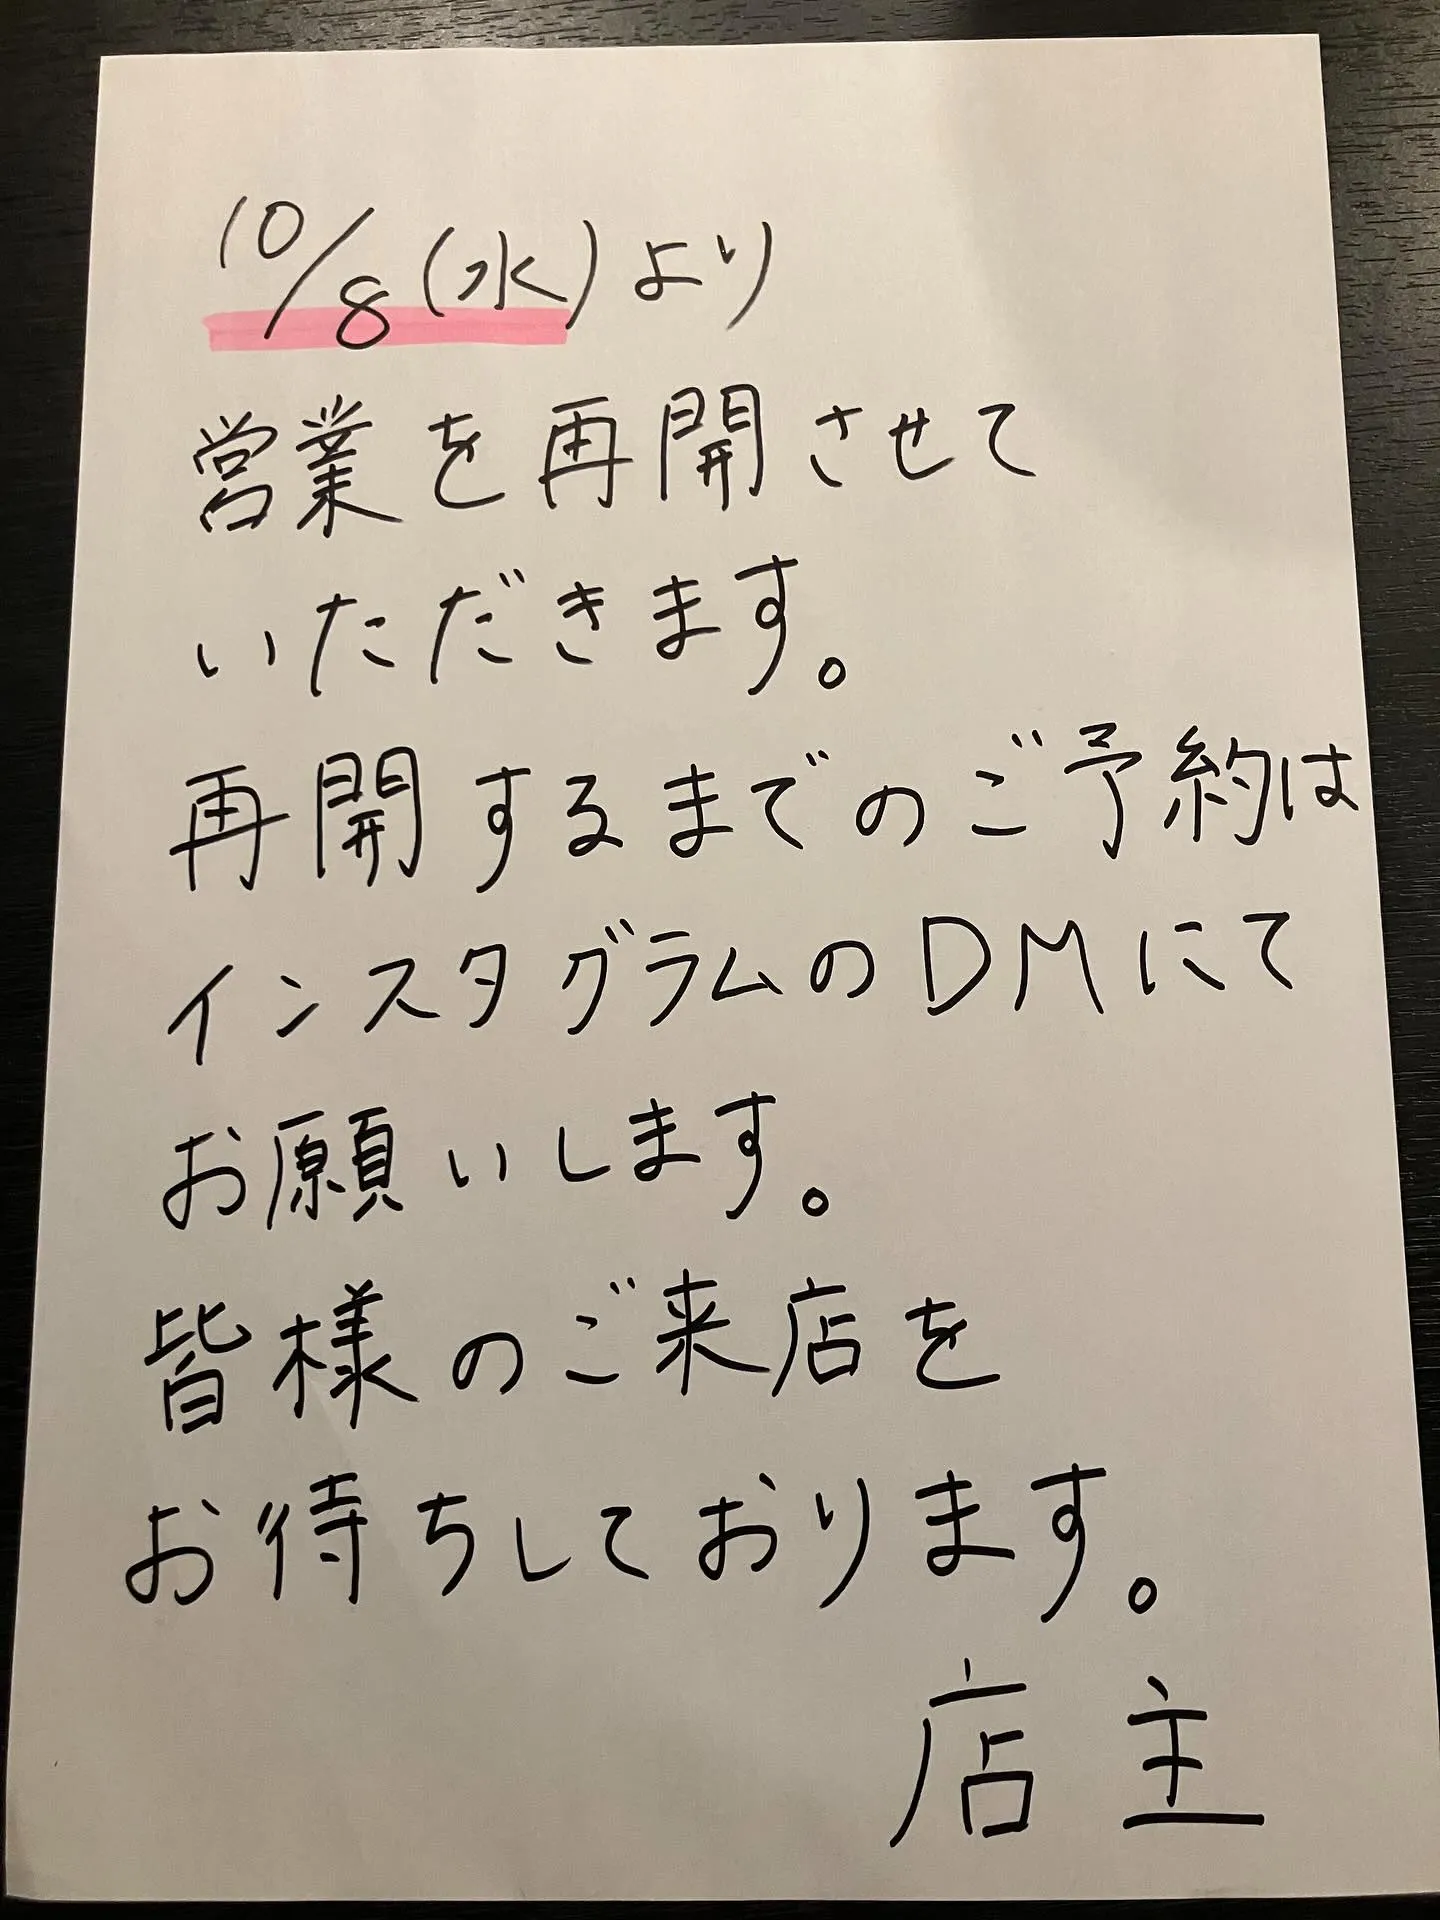 10/8(水)より
営業を再開させて
いただきます。
再開するまでのご予約は
インスタグラムのDMにて
お願いします。
皆様のご来店を
お待ちしております。
店主